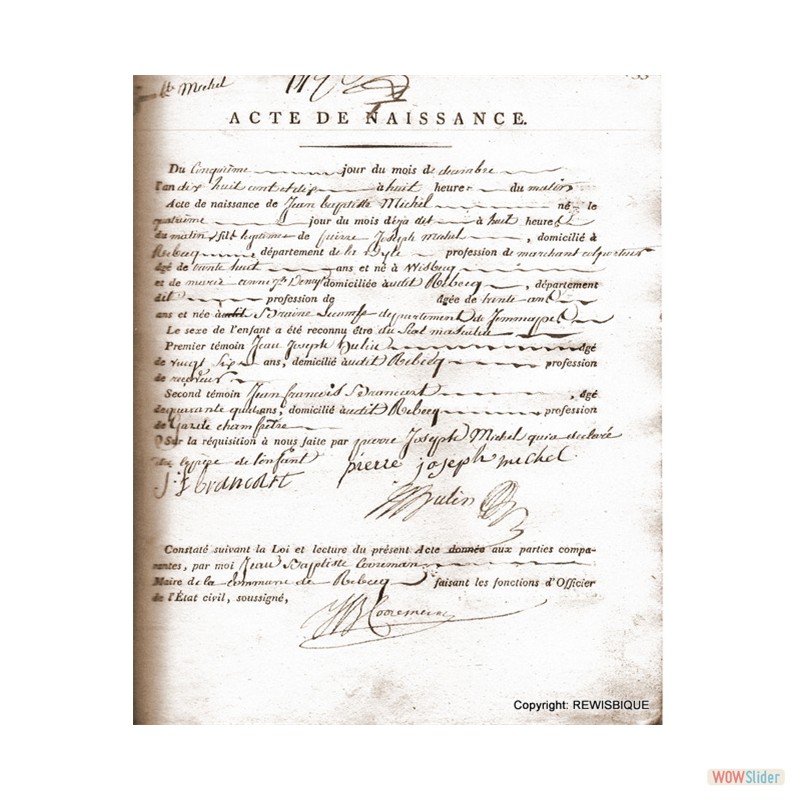 Michel
ACTE DE NAISSANCE.
Du Cinquieme jour du mois de decembre
l'an dix huit cent et dix à huit heure du matin
Acte de naissance de Jean Baptiste Michel né le
quatrieme jour du mois deja dit à huit heure
du matin, fils legitime de pierre Joseph Michel, domicilié à
Rebecq département de la Dyle profession de marchand colporteur
âgé de trente huit ans et né à Wisbecq
et de marie anne domiciliée audit Rebecq, département
dit profession de âgée de trente
ans et née à Braine Lecomte departement de Jemmappe
Le sexe de l'enfant a été reconnu être du Sexe masculin
Premier témoin Jean Joseph Hulin âgé
de vingt Six ans, demicilié audit Rebecq profession
de receveur
Second témoin Jean francois Brancart, âgé
de quarante ans, domicilié audit Rebecq profession
de Garde champêtre
Sur la réquisition à nous faite par pierre Joseph Michel qui a declaré
être le père de l'enfant
J: F Brancart pierre joseph michel
Hulin
Constaté suivant la Loi et lecture du présent Acte donnée aux parties compa-
rantes, par moi Jean Baptiste Cooreman
Maire de la commune de Rebecq faisant les fonctions d'Officier
de l'État civil, soussigné,
JB Cooreman
Copyright: REWISBIQUE
WOWSlider